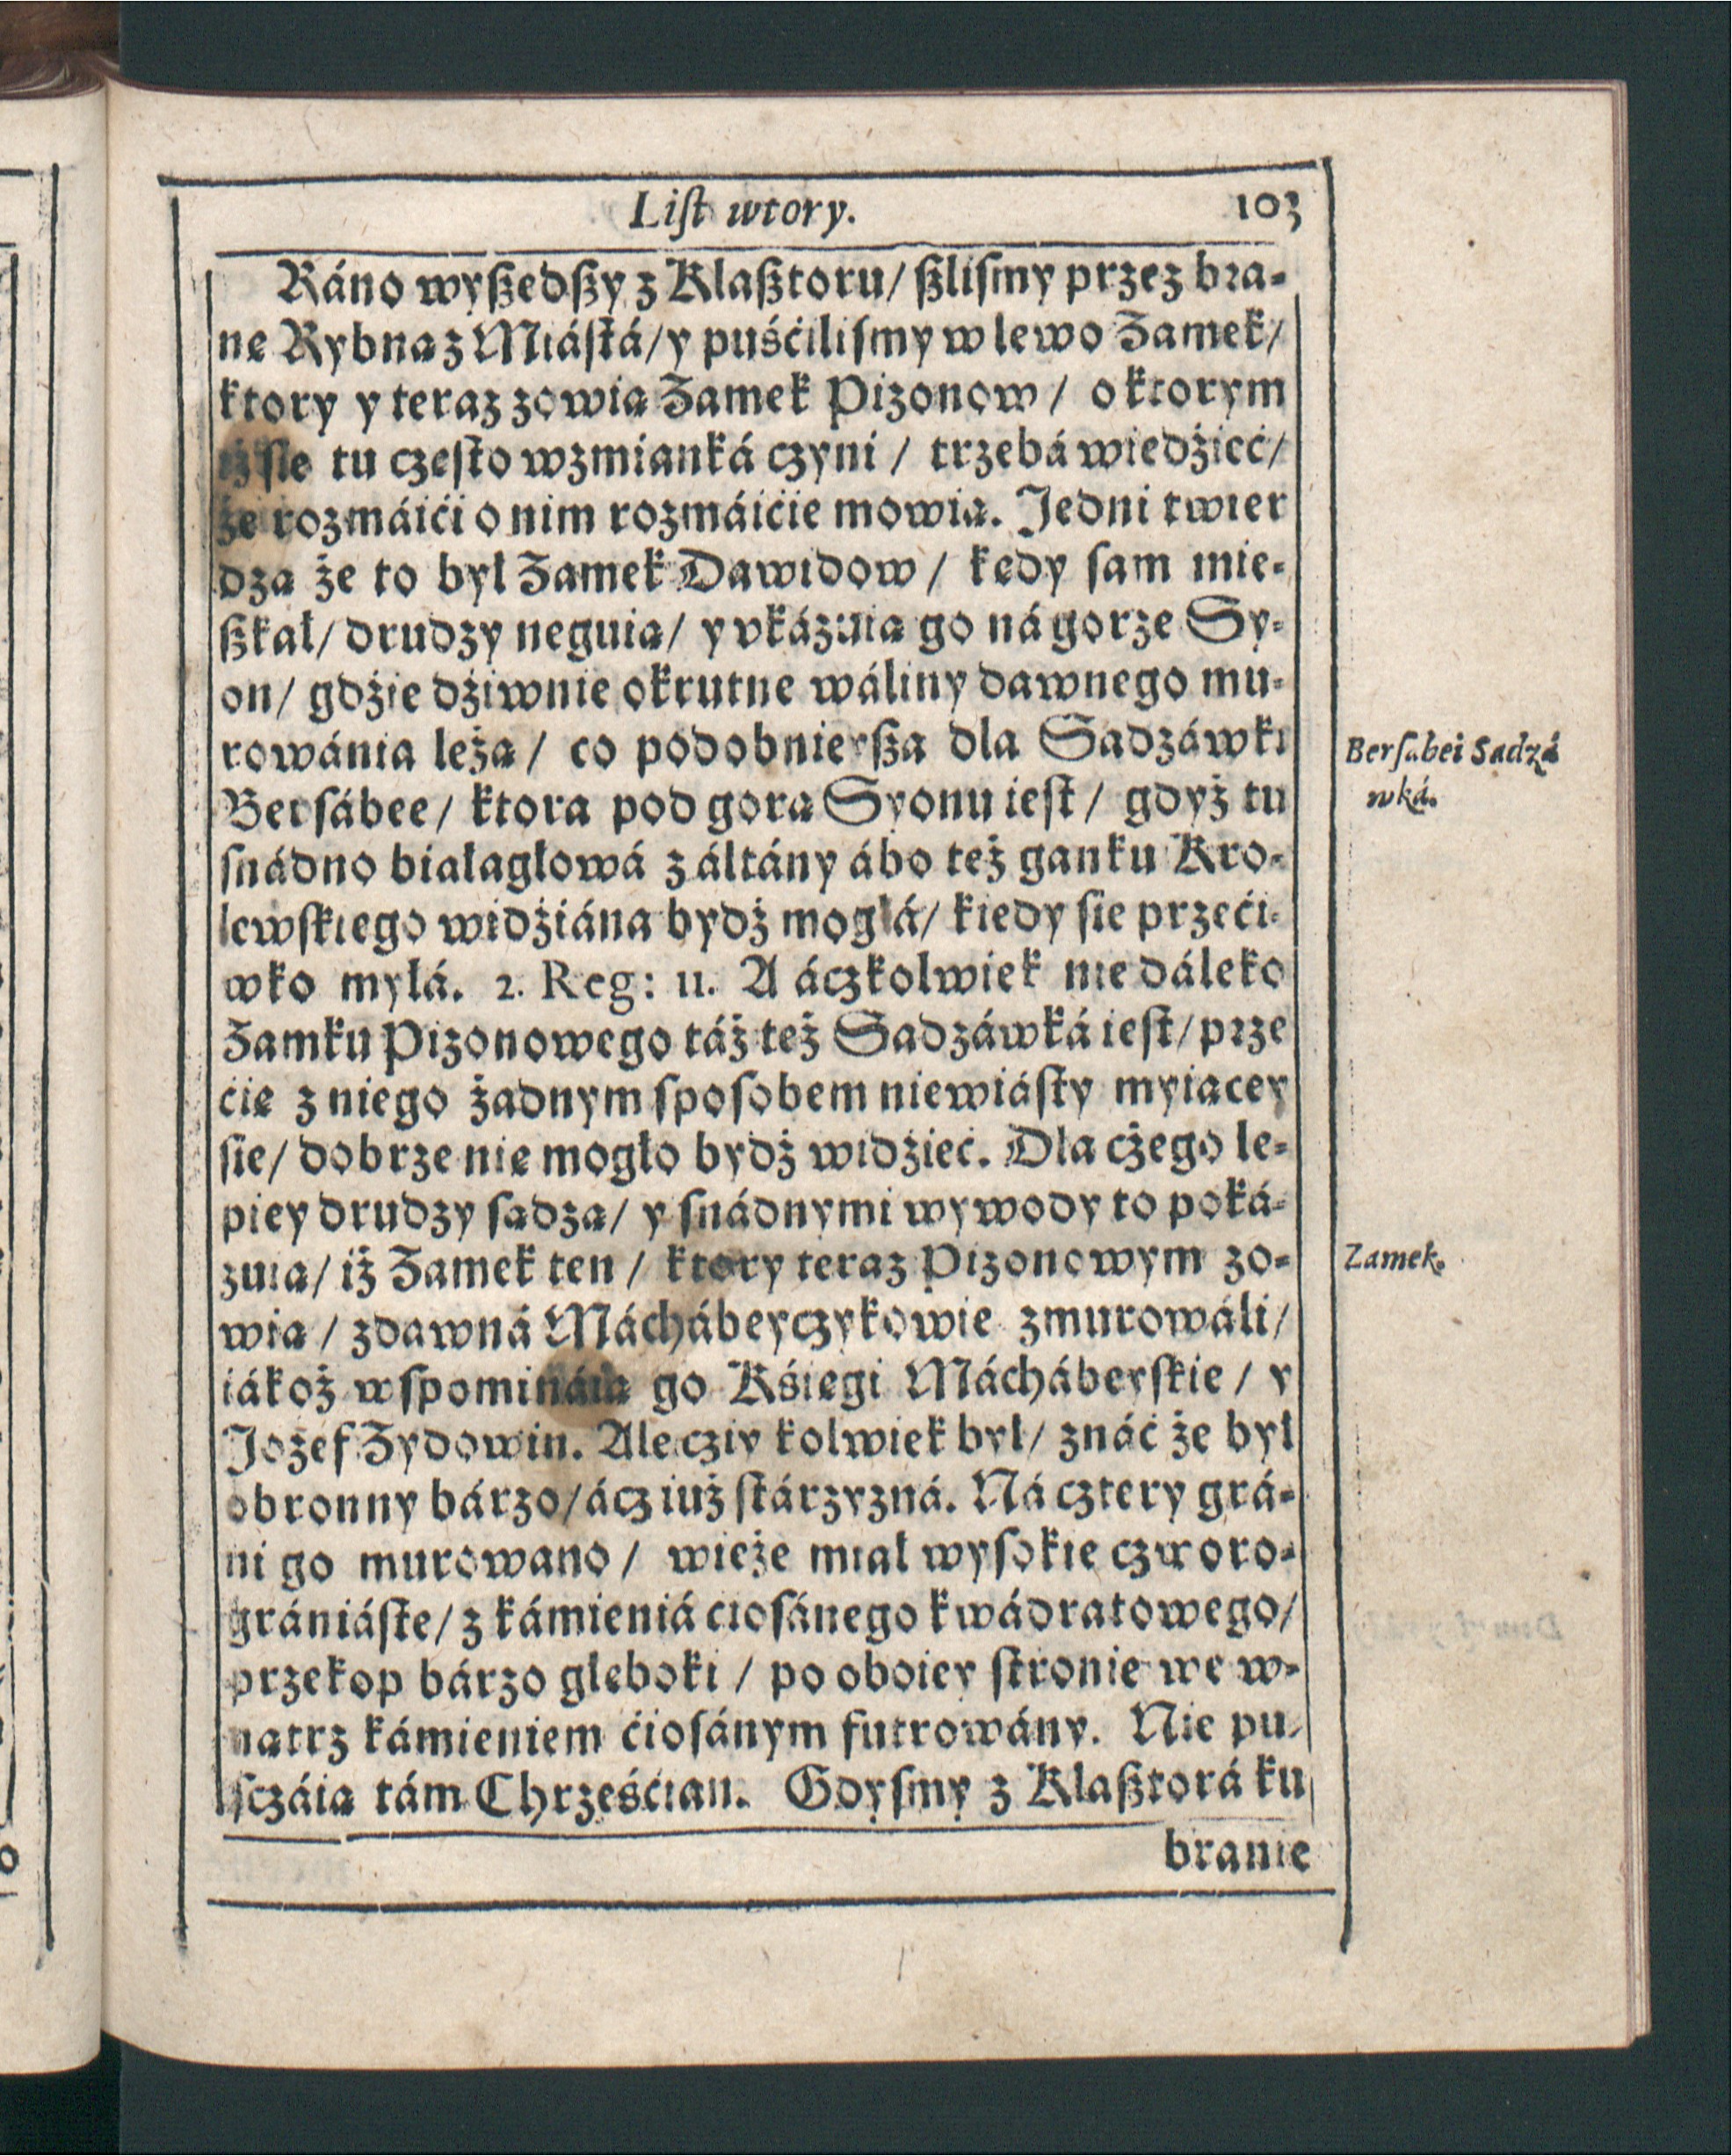 Liſt wtory.
103
Ráno wyßedßy z Klaßtoru/ ßliſmy przez bra-
ne Rybna z Miáſtá/ y puśćiliſmy w lewo Zamek/
ktory y teraz zowia Zamek Pizonow / o ktorym
iż ſie tu czeſto wzmianká czyni / trzebá wiedżieć/
że rozmáići o nim rozmáićie mowia. Jedni twier
dza że to był Zamek Dawidow / kedy ſam mie-
ßkał/ drudzy neguia/ y vkázuia go ná gorze Sy-
on/ gdżie dżiwnie okrutne wáliny dawnego mu-
rowánia leża / co podobnieyßa dla Sadzáwki
Berſábee/ ktora pod gora Syonu ieſt / gdyż tu
ſnádno białagłowá z áltány ábo też ganku Kro-
lewſkiego widżiána bydż mogłá/ kiedy ſie przeći-
wko myłá. 2. Reg: 11. A áczkolwiek nie dáleko
Zamku Pizonowego táż też Sadzáwká ieſt/ prze
ćie z niego żadnym ſpoſobem niewiáſty myiacey
ſie/ dobrze nie mogło bydż widżieć. Dla cżego le-
piey drudzy ſadza/ y ſnádnymi wywody to poká-
zuia/ iż Zamek ten / ktory teraz Pizonowym zo-
wia / zdawná Mácháбeyczykowie zmurowáli/
iákoż wſpomináia go Kśiegi Mácháбeyſkie / y
Jozef Zydowin. Ale cziy kolwiek był/ znáć że był
obronny bárzo/ ácz iuż ſtárzyzná. Ná cztery grá-
ni go murowano / wieże miał wyſokie czworo-
grániáſte/ z kámieniá cioſánego kwádratowego/
przekop bárzo głeboki / po oboiey ſtronie we w-
natrz kámieniem ćioſánym futrowány. Nie pu-
ſczáia tám Chrześćian. Gdyſmy z Klaßtorá ku
branie
Berſabei Sadzá
wká.
Zamek.